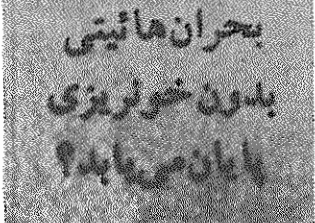 بحران هائیتی
بدون خونریزی
پایان می‌یابد؟